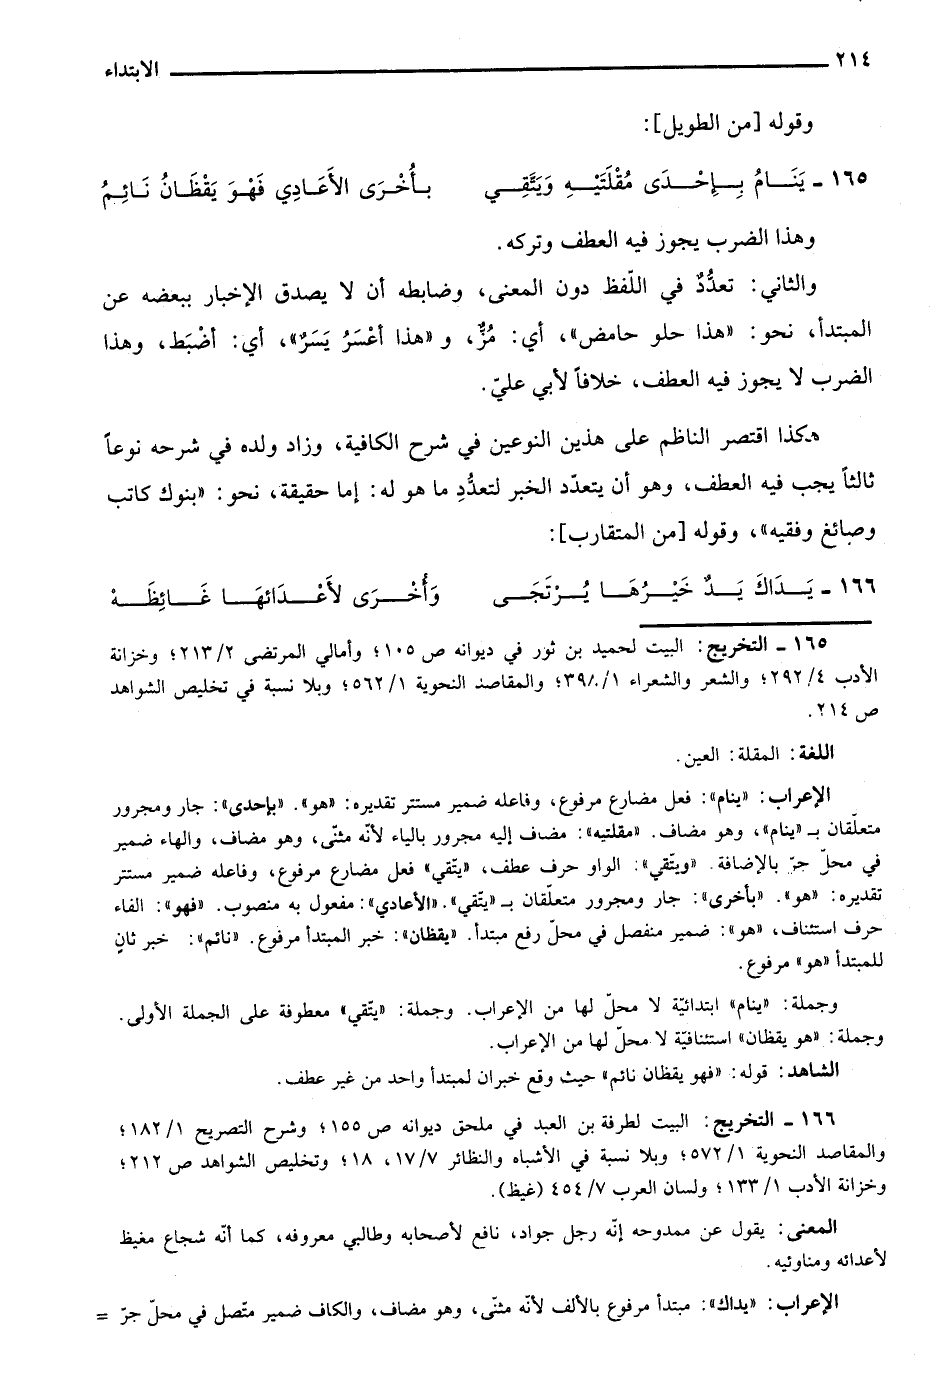 ٢١٤ الابتداء
وقوله [من الطويل]:
١٦٥ ـ يَنَـامُ بِـإِحْـدَى مُقْلَتَيْـهِ وَيَتَّقِـي بـأُخْرَى الأَعَـادِي فَهْـوَ يَقْظَـانُ نَـائِـمُ
وهذا الضرب يجوز فيه العطف وتركه.
والثاني: تعدُّدٌ في اللّفظ دون المعنى، وضابطه أن لا يصدق الإخبار ببعضه عن
المبتدأ، نحو: «هذا حلو حامض»، أي: مُزٌّ، و «هذا أعْسَرُ يَسَرٌ»، أي: أضْبَط، وهذا
الضرب لا يجوز فيه العطف، خلافاً لأبي عليّ.
هكذا اقتصر الناظم على هذين النوعين في شرح الكافية، وزاد ولده في شرحه نوعاً
ثالثاً يجب فيه العطف، وهو أن يتعدّد الخبر لتعدُّدِ ما هو له: إما حقيقة، نحو: «بنوك كاتب
وصائغ وفقيه»، وقوله [من المتقارب]:
١٦٦ ـ يَـدَاكَ يَـدٌ خَيْـرُهَـا يُـرْتَجَـى وَأُخْـرَى لأَعْـدَائِهَـا غَـائِظَـهْ
١٦٥ ـ التخريج: البيت لحميد بن ثور في ديوانه ص ١٠٥؛ وأمالي المرتضى ٢/ ٢١٣؛ وخزانة
الأدب ٤/ ٢٩٢؛ والشعر والشعراء ١/ ٣٩٨؛ والمقاصد النحوية ١/ ٥٦٢؛ وبلا نسبة في تخليص الشواهد
ص ٢١٤.
اللغة: المقلة: العين.
الإعراب: «ينام»: فعل مضارع مرفوع، وفاعله ضمير مستتر تقديره: «هو». «بإحدى»: جار ومجرور
متعلّقان بـ «ينام»، وهو مضاف. «مقلتيه»: مضاف إليه مجرور بالياء لأنّه مثنّى، وهو مضاف، والهاء ضمير
في محلّ جرّ بالإضافة. «ويتقي»: الواو حرف عطف، «يتّقي» فعل مضارع مرفوع، وفاعله ضمير مستتر
تقديره: «هو». «بأخرى»: جار ومجرور متعلّقان بـ «يتّقي». «الأعادي»: مفعول به منصوب. «فهو»: الفاء
حرف استئناف، «هو»: ضمير منفصل في محلّ رفع مبتدأ. «يقظان»: خبر المبتدأ مرفوع. «نائم»: خبر ثانٍ
للمبتدأ «هو» مرفوع.
وجملة: «ينام» ابتدائيّة لا محلّ لها من الإعراب. وجملة: «يتّقي» معطوفة على الجملة الأولى.
وجملة: «هو يقظان» استئنافيّة لا محلّ لها من الإعراب.
الشاهد: قوله: «فهو يقظان نائم» حيث وقع خبران لمبتدأ واحد من غير عطف.
١٦٦ ـ التخريج: البيت لطرفة بن العبد في ملحق ديوانه ص ١٥٥؛ وشرح التصريح ١/ ١٨٢؛
والمقاصد النحوية ١/ ٥٧٢؛ وبلا نسبة في الأشباه والنظائر ٧/ ١٧، ١٨؛ وتخليص الشواهد ص ٢١٢؛
وخزانة الأدب ١/ ١٣٣؛ ولسان العرب ٧/ ٤٥٤ (غيظ).
المعنى: يقول عن ممدوحه إنّه رجل جواد، نافع لأصحابه وطالبي معروفه، كما أنّه شجاع مغيظ
لأعدائه ومناوئيه.
الإعراب: «يداك»: مبتدأ مرفوع بالألف لأنّه مثنّى، وهو مضاف، والكاف ضمير متّصل في محلّ جرّ =